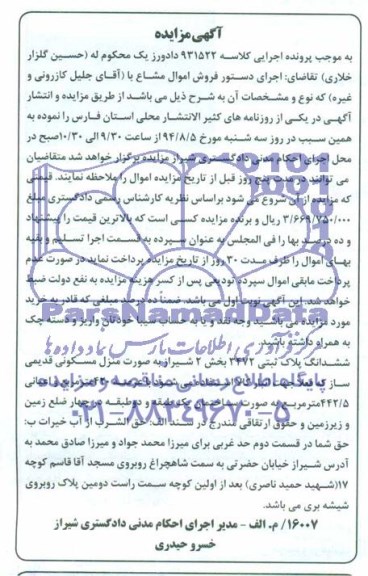 آگهی مزایده
به موجب پرونده اجرایی کلاسه ۹۳۱۵۲۲ دادورز یک محکوم له (حسین گلزار
خلاری) تقاضای: اجرای دستور فروش اموال مشاع با (آقای جلیل کازرونی و
غیره) که نوع و مشخصات آن به شرح ذیل می باشد از طریق مزایده و انتشار
آگهی در یکی از روزنامه های کثیر الانتشار محلی استان فارس را نموده به
همین سبب در روز سه شنبه مورخ ۹۴/۸/۵ از ساعت ۹/۳۰ الی ۱۰/۳۰ صبح در
محل اجرای احکام مدنی دادگستری شیراز مزایده برگزار خواهد شد متقاضیان
می توانند در مدت پنج روز قبل از تاریخ مزایده اموال را ملاحظه نمایند. قیمتی
که مزایده از آن شروع می شود براساس نظریه کارشناس رسمی دادگستری مبلغ
۳/۶۶۹/۷۵۰/۰۰۰ ریال و برنده مزایده کسی است که بالاترین قیمت را پیشنهاد
و ده درصد بها را فی المجلس به عنوان سپرده به قسمت اجرا تسلیم و بقیه
بهای اموال را ظرف مدت ۳۰ روز از تاریخ مزایده پرداخت نماید در صورت عدم
پرداخت مابقی اموال سپرده تودیعی پس از کسر هزینه مزایده به نفع دولت ضبط
خواهد شد. این آگهی نوبت اول می باشد. ضمناً ده درصد مبلغی که قادر به خرید
مورد مزایده می باشید وجه نقد و یا به حساب سپرده خودتان واریز و دسته چک
به همراه داشته باشید.
ParsNamadData
فرآوری اطلاعات پارس نماد داده ها
ششدانگ پلاک ثبتی ۳۴۷۲ بخش ۲ شیراز به صورت منزل مسکونی قدیمی
پایگاه اطلاع رسانی مناقصه و مزایده
۴۴۲/۵ مترمربع به صورت ساختمان یک طبقه و دو طبقه در چهار ضلع زمین
۰۲۱-۸۸۳۴۹۶۷۰-۵
و زیرزمین و حقوق ارتفاقی مندرج در سند الف: حق الشرب از آب خیرات ب:
حق شما در قسمت دوم حد غربی برای میرزا محمد جواد و میرزا صادق محمد به
آدرس شیراز خیابان حضرتی به سمت شاهچراغ روبروی مسجد آقا قاسم کوچه
۱۷(شهید حمید ناصری) بعد از اولین کوچه سمت راست دومین پلاک روبروی
شیشه بری می باشد.
۱۶۰۰۷/م. الف - مدیر اجرای احکام مدنی دادگستری شیراز
خسرو حیدری